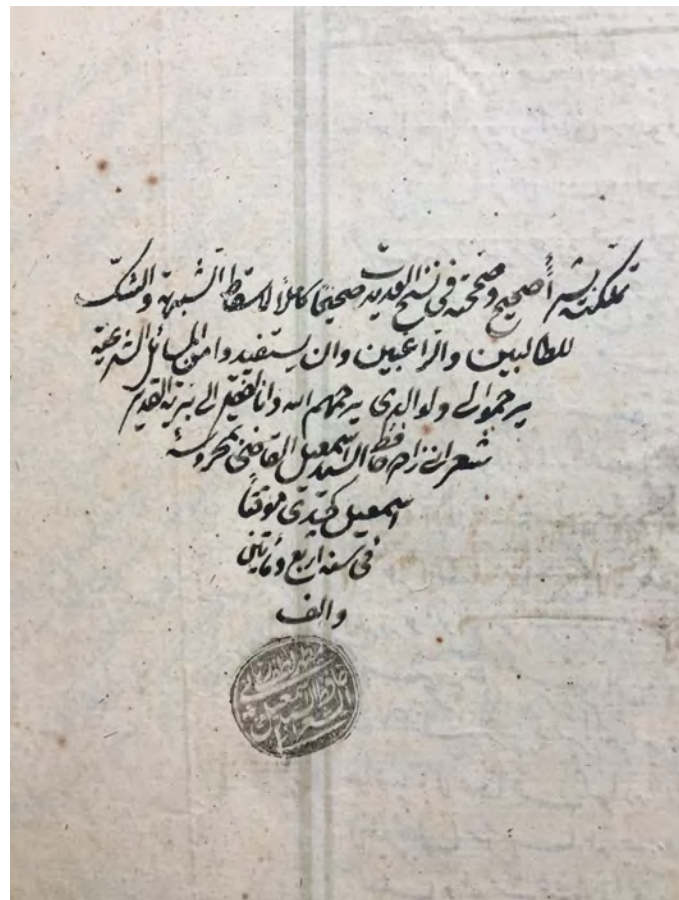 تملكته بشراء صحيح وصححته في نسخ العديدة صحيحا كاملا لاسقاط الشبهة والشك
للطالبين والراغبين وان يستفيدوا من المسائل الشرعية
يرحموا لي ولوالدي يرحمهم الله وانا الفقير الى ربه القدير
شعراني زاده حافظ السيد اسمعيل القاضي بمحروسة
اسمعيل كچيدى موقتا
في سنه اربع ومأتين
والف